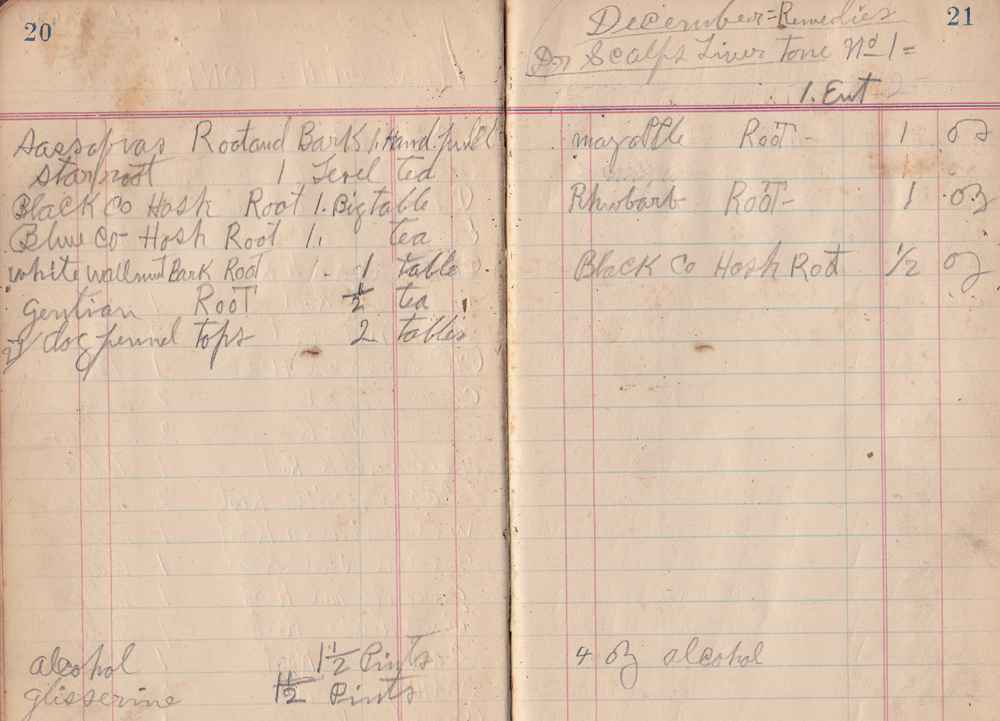 20
Sassofras Root and Bark 1. Hand full
Starroot 1 Level tea
Black Co Hosh Root 1. Big table
Blue Co-Hosh Root 1. tea
white wallnut Bark Root 1 table
Gentian Root 1/2 tea
dog fennel tops 2 tables
alcohol 1 1/2 Pints
glisserine 1 1/2 Pints
21
December = Remedies
Dr Scalfs Liver Tone No 1 =
1. Ent
Root - 1 oz
Rhubarb Root - 1 oz
Black Co Hosh Root 1/2 oz
4 oz alcohol